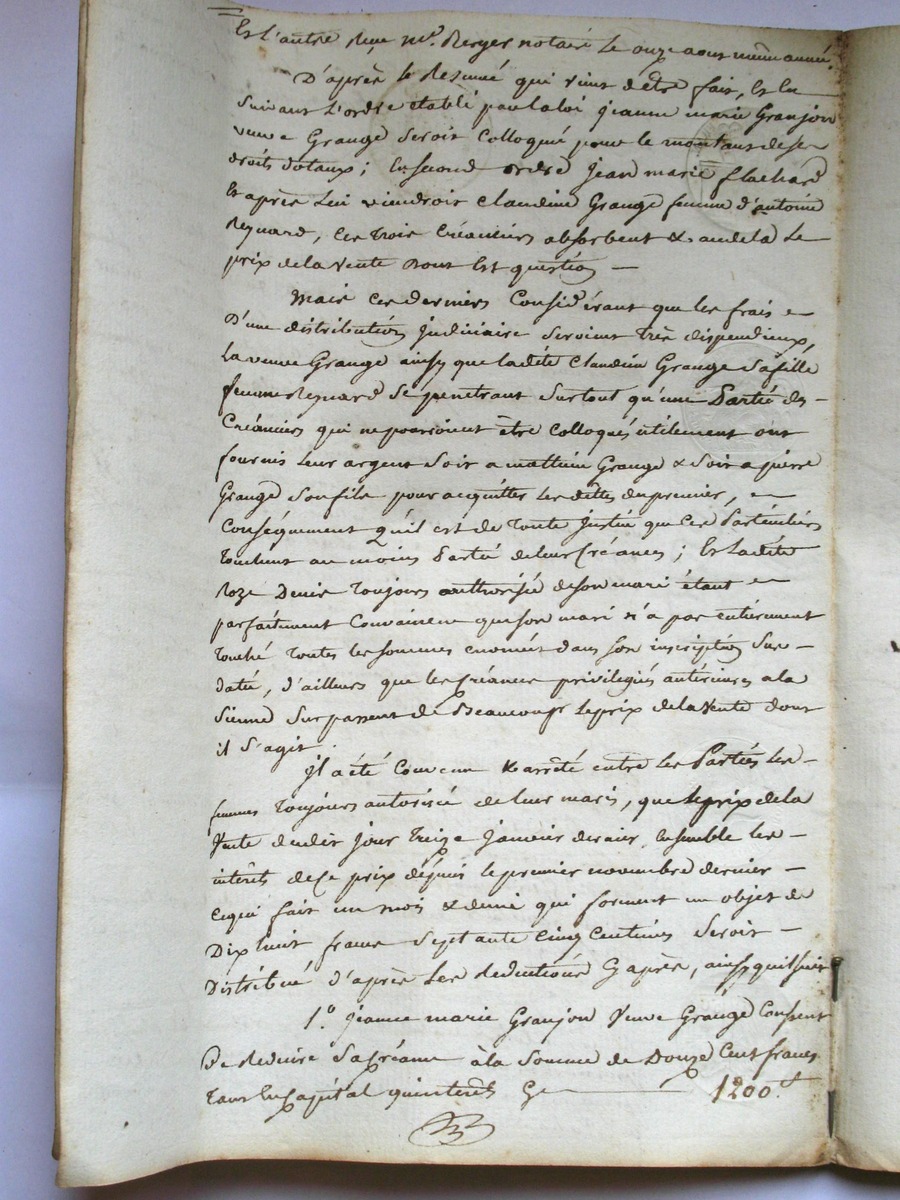 Et l'autre Reçue Me. Berger notaire le onze aous meme année.
D'après le Resumé qui vient d'être fait, Et En
suivant l'ordre etabli par la loi jeanne marie Granjon
veuve Grange seroit Colloqué pour le montant de ses
droits dotaux; En second ordre jean marie flachard
Et après lui viendroit Claudine Grange femme d'antoine
Reynard, Ces trois Créanciers absorbent & audela le
prix de la vente Dont Est question —
Mais ces derniers Considérant que les frais
D'une distribution judiciaire seroient très dispendieux,
la veuve Grange ainsy que ladite Claudine Grange sa fille
femme Reynard se penetrant surtout qu'une Partie des
Créanciers qui ne pouroient être Colloqués utilement ont
fournis leur argent soit a mathieu Grange & soit a pierre
Grange son fils pour acquitter les dettes du premier,
Conséquemment qu'il est de toute justice que Ces Particuliers
touchent au moins Partie de leurs Créances; Et ladite
Roze Denis toujours authorisée de son mari étant
parfaitement Convaincue que son mari n'a pas entièrement
touché toutes les sommes enoncées dans son inscription sus-
datée, d'ailleurs que les Créances privilegiés antérieures a la
sienne surpassent de Beaucoup le prix de la vente dont
il s'agit.
Il a été Convenu & arrêté entre les Parties les
femmes toujours autorisée de leur maris, que le prix de la
Vente dudit jour treize janvier dernier, Ensemble les
intérêts de Ce prix depuis le premier novembre dernier
Ce qui fait un mois & demi qui forment un objet de
Dix huit francs septante Cinq Centimes seroit
Distribué d'après les Reductions Cy après, ainsy qu'il suit
1.° jeanne marie Granjon Veuve Grange Consent
De Reduire sa Créance à la somme de Douze Cent francs
tant En Capital qu'interets Cy — 1200.f